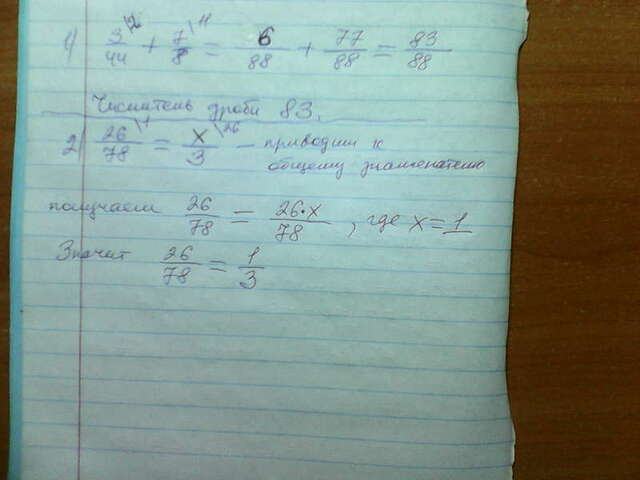 1) 3/44 \2 + 7/8 \11 = 6/88 + 77/88 = 83/88
Числитель дроби 83.
2) 26/78 \1 = x/3 \26 - приводим к
общему знаменателю
получаем 26/78 = 26·x/78, где x=1
Значит 26/78 = 1/3